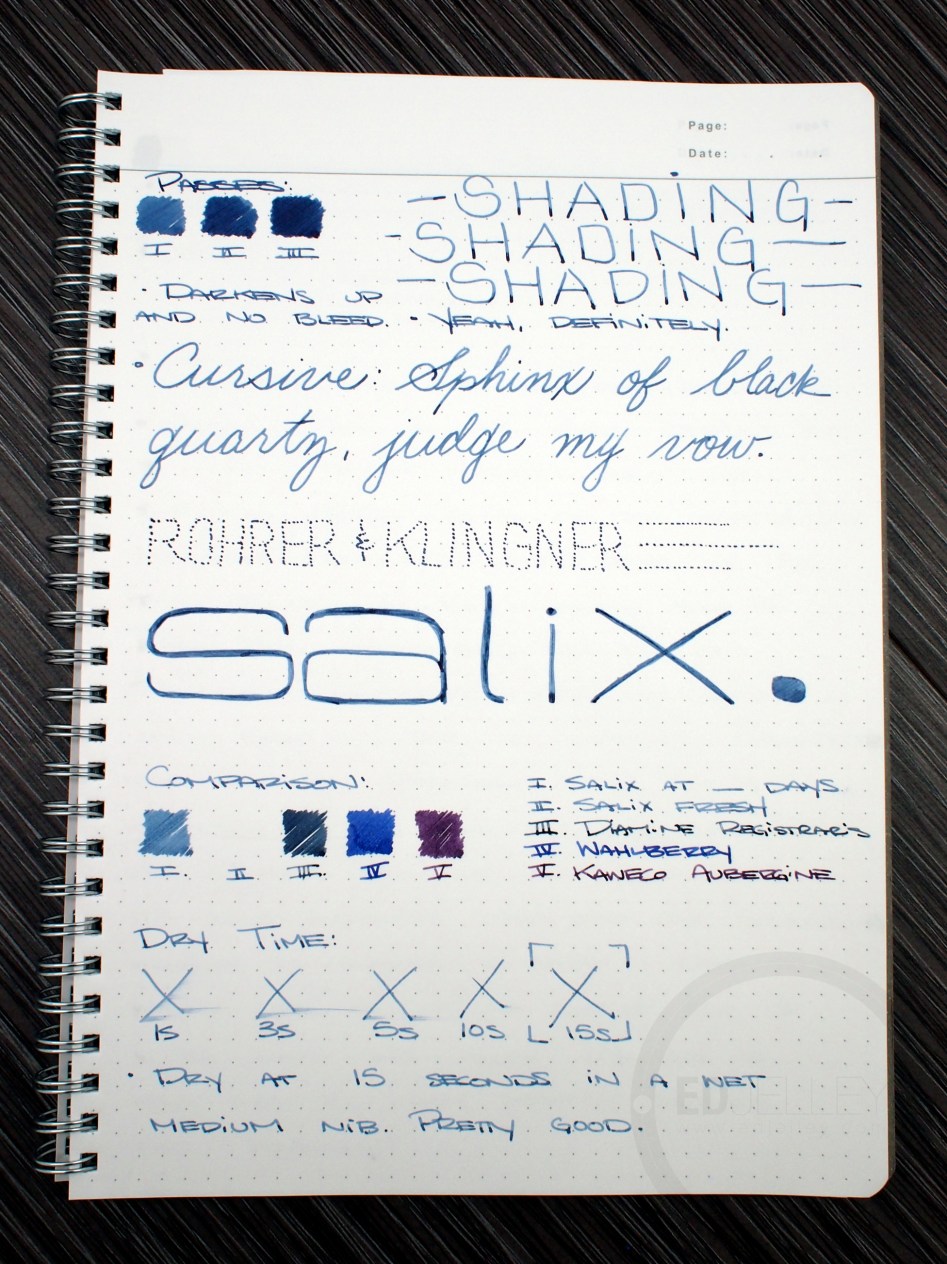 Page:
Date: . .
PASSES:
I II III
-SHADING-
-SHADING-
-SHADING-
· DARKENS UP
AND NO BLEED. · YEAH, DEFINITELY.
· Cursive: Sphinx of black
quartz, judge my vow.
ROHRER & KLINGNER
salix.
COMPARISON:
I. II III. IV V
I. SALIX AT __ DAYS
II. SALIX FRESH
III. DIAMINE REGISTRARIS
IV WAHLBERRY
V. KAWECO AUBERGINE
DRY TIME:
X X X X X
1S 3S 5S 10S 15S
· DRY AT 15 SECONDS IN A WET
MEDIUM NIB. PRETTY GOOD.
EDJELLEY